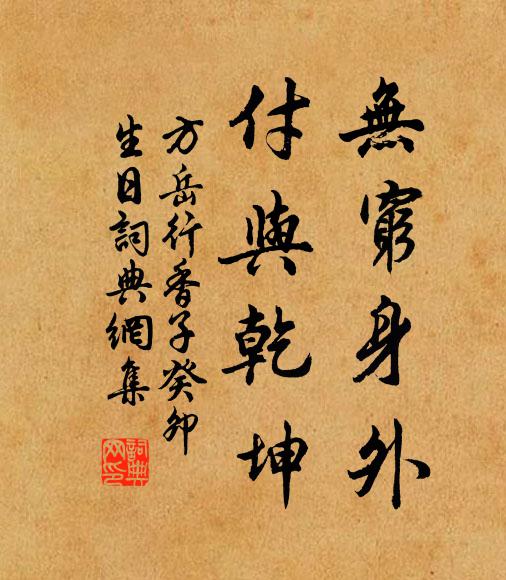 無窮身外
付與乾坤
方岳行香子癸卯
生日詞典網集
詞典
网印